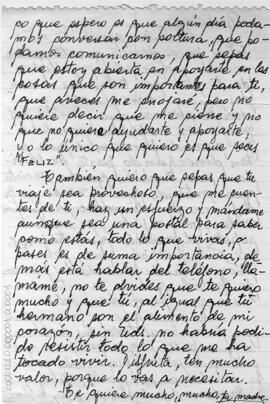 po que espero es que algún día poda-
mos conversar con postura, que po-
damos comunicarnos, que sepas
que estoy abierta en apoyarte en las
cosas que son importantes para ti,
que a veces me enojaré, pero no
quiere decir que me cierre y no
que no quiera ayudarte y apoyarte,
yo lo único que quiero es que seas
"FELIZ".
También quiero que sepas que tu
viaje sea provechoso, que me cuen-
tes de ti, haz un esfuerzo y mándame
aunque sea una postal para saber
como estás, todo lo que vivas, o
pases es de suma importancia, de-
más está hablar del teléfono, llá-
mame, no te olvides que te quiero
mucho y que tú, al igual que tu
hermano son el alimento de mi
corazón, sin uds. no habría podi-
do resistir todo lo que me ha
tocado vivir. Disfruta, ten mucho
valor, porque lo vas a necesitar.
Te quiere mucho, mucho, tu madre